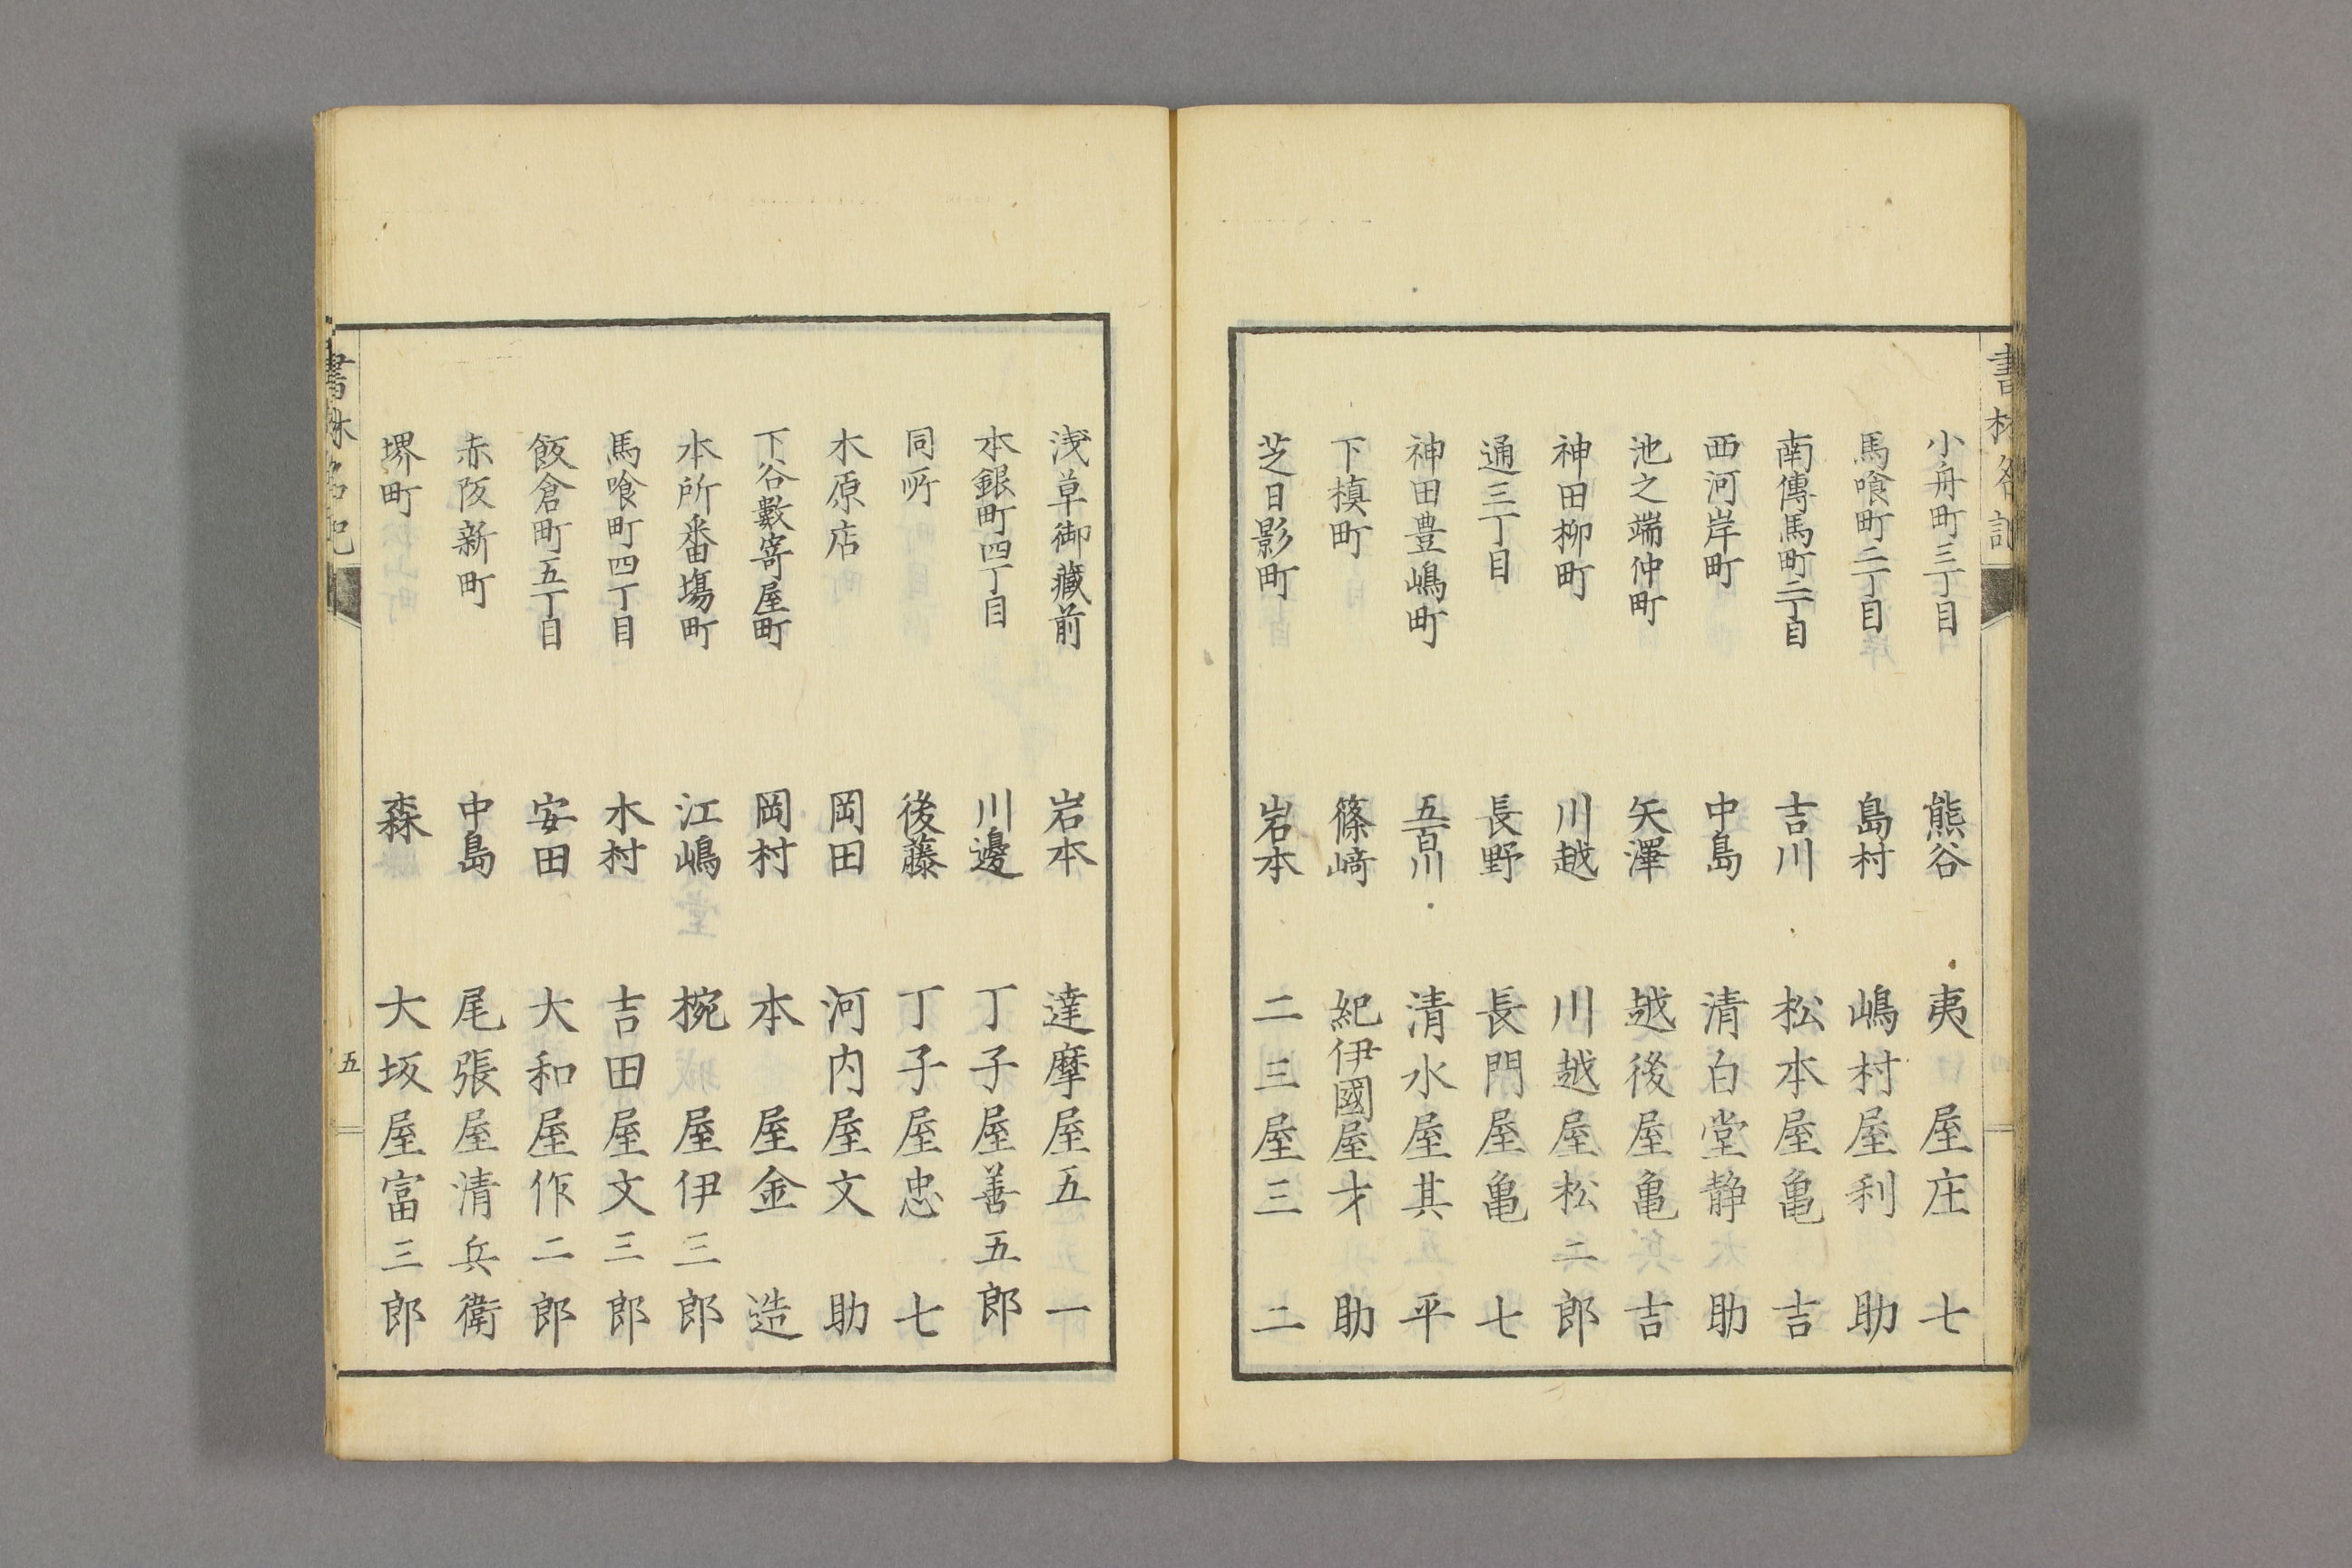 書林名記
小舟町三丁目 熊谷 夷屋庄七
馬喰町二丁目 島村 嶋村屋利助
南傳馬町二丁目 吉川 松本屋亀吉
西河岸町 中島 清白堂静助
池之端仲町 矢澤 越後屋亀吉
神田柳町 川越 川越屋松二郎
通三丁目 長野 長門屋亀七
神田豊嶋町 五百川 清水屋其平
下槙町 篠﨑 紀伊國屋才助
芝日影町 岩本 二三屋三二
浅草御藏前 岩本 達摩屋五一
本銀町四丁目 川邊 丁子屋善五郎
同所 後藤 丁子屋忠七
木原店 岡田 河内屋文助
下谷數寄屋町 岡村 本屋金造
本所番塲町 江嶋 椀屋伊三郎
馬喰町四丁目 木村 吉田屋文三郎
飯倉町五丁目 安田 大和屋作二郎
赤阪新町 中島 尾張屋清兵衛
堺町 森 大坂屋富三郎
書林名記 五